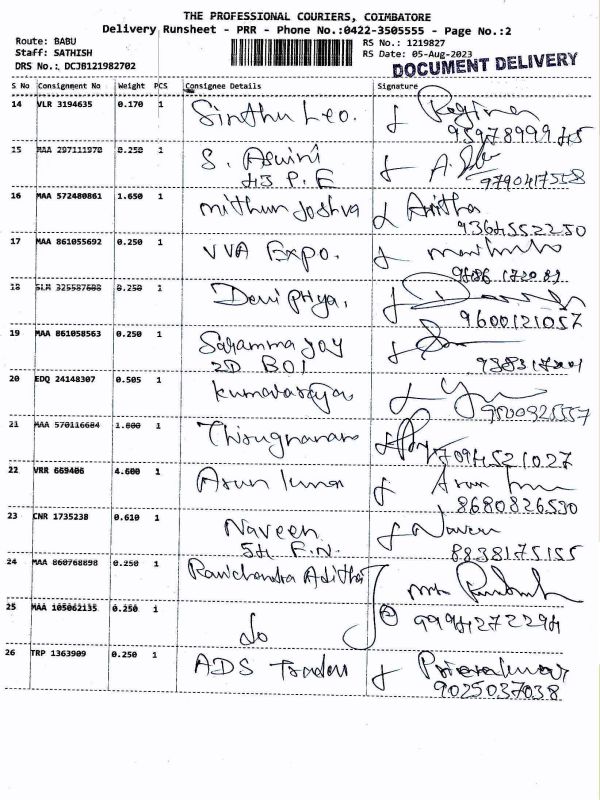 THE PROFESSIONAL COURIERS, COIMBATORE
Delivery Runsheet - PRR - Phone No.:0422-3505555 - Page No.:2
Route: BABU
Staff: SATHISH
DRS No.: DCJB121982702
RS No.: 1219827
RS Date: 05-Aug-2023
DOCUMENT DELIVERY
S No Consignment No Weight PCS Consignee Details Signature
14 VLR 3194635 0.170 1 Sinthu Leo.
15 MAA 297111970 0.250 1 S. Aswini
43 P.E
9790417558
16 MAA 572480861 1.650 1 Mithun Joshva Anitha
9364552230
17 MAA 861055692 0.250 1 VVA Expo.
18 SLM 325587608 0.250 1 Devi Priya.
9600121057
19 MAA 861058563 0.250 1 Saramma Joy
2D BOI
20 EDQ 24148307 0.505 1
9500925557
21 MAA 570116604 1.000 1
7094521027
22 VRR 669406 4.600 1 Arun Kumar Arun
8680826530
23 CNR 1735238 0.610 1 Naveen Naveen
54 F.N.
8838175155
24 MAA 860768898 0.250 1 Ravichandra Aditha
25 MAA 105062135 0.250 1 do
9994272294
26 TRP 1363909 0.250 1 ADS Traders
9025037038